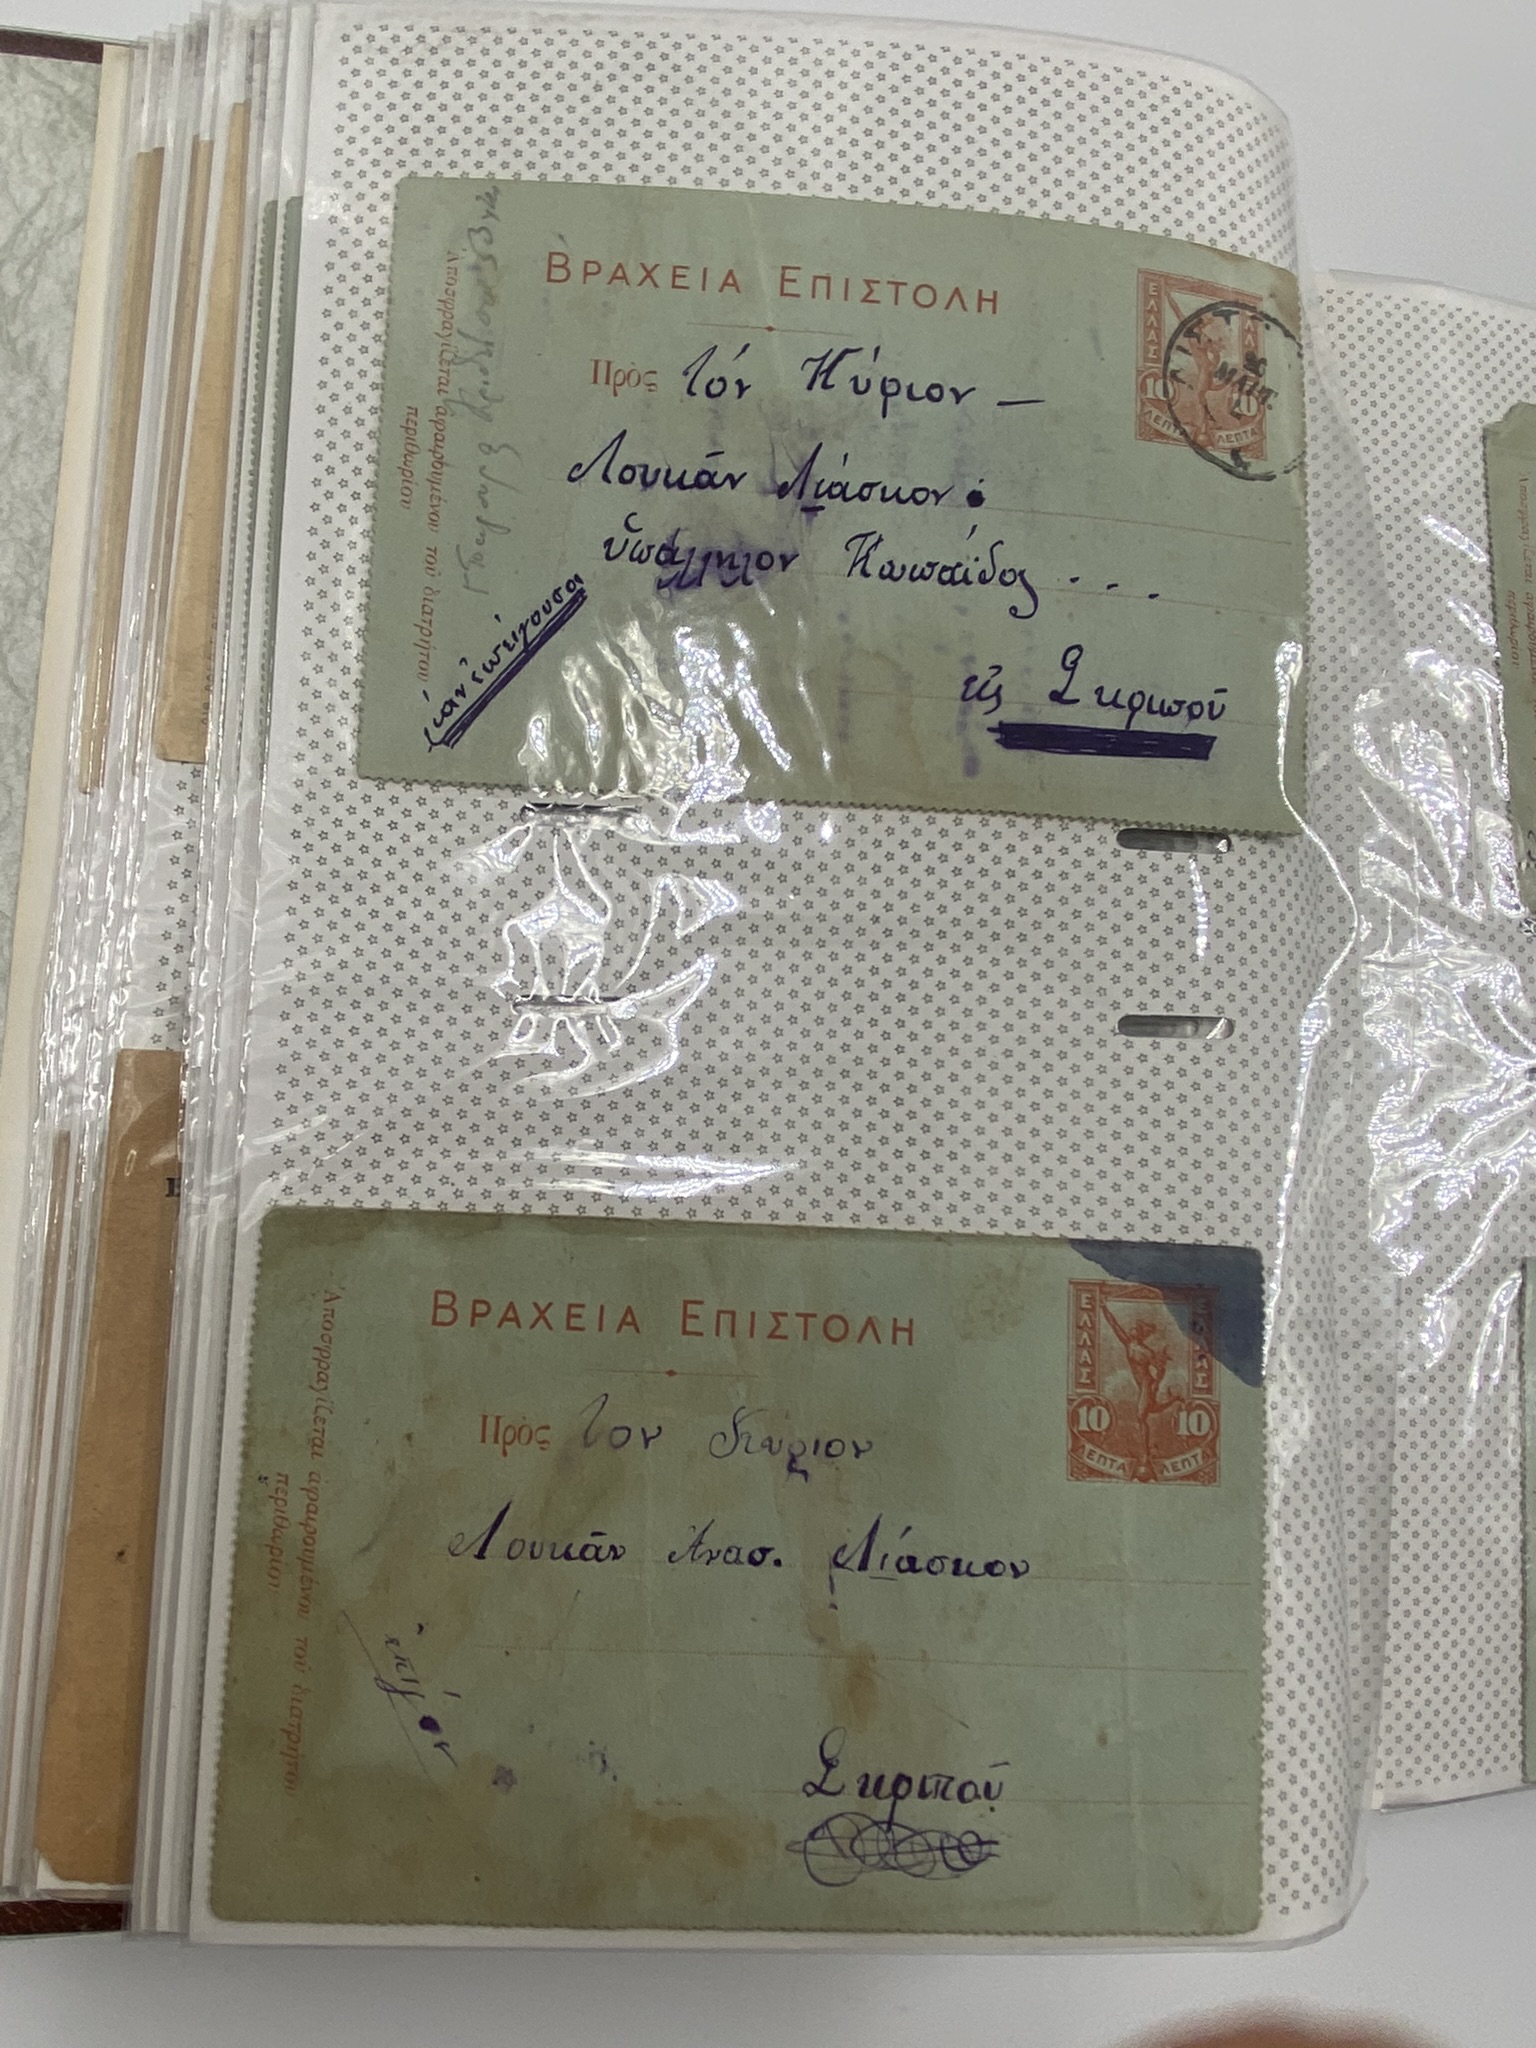 ΒΡΑΧΕΙΑ ΕΠΙΣΤΟΛΗ
ΕΛΛΑΣ
10 10
ΛΕΠΤΑ ΛΕΠΤΑ
Πρὸς τόν Κύριον —
Λουκᾶν Λιάσκον
Κωπαΐδος . . .
εἰς Σκριποῦ
Ἀποσφραγίζεται ἀφαιρουμένου τοῦ διατρήτου
περιθωρίου
ΒΡΑΧΕΙΑ ΕΠΙΣΤΟΛΗ
ΕΛΛΑΣ ΕΛΛΑΣ
10 10
ΛΕΠΤΑ ΛΕΠΤΑ
Πρὸς Τον Κύριον
Λουκᾶν Ἀνασ. Λιάσκον
Σκριποῦ
Ἀποσφραγίζεται ἀφαιρουμένου τοῦ διατρήτου
περιθωρίου